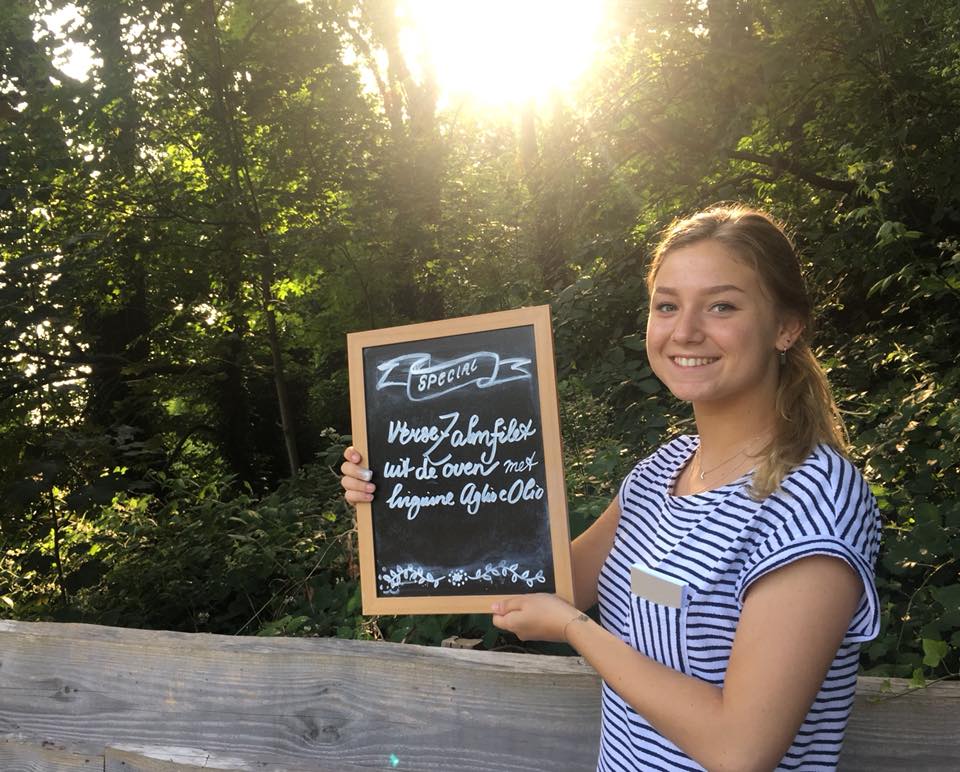 SPECIAL
Verse Zalmfilet
uit de oven met
linguine Aglio e Olio